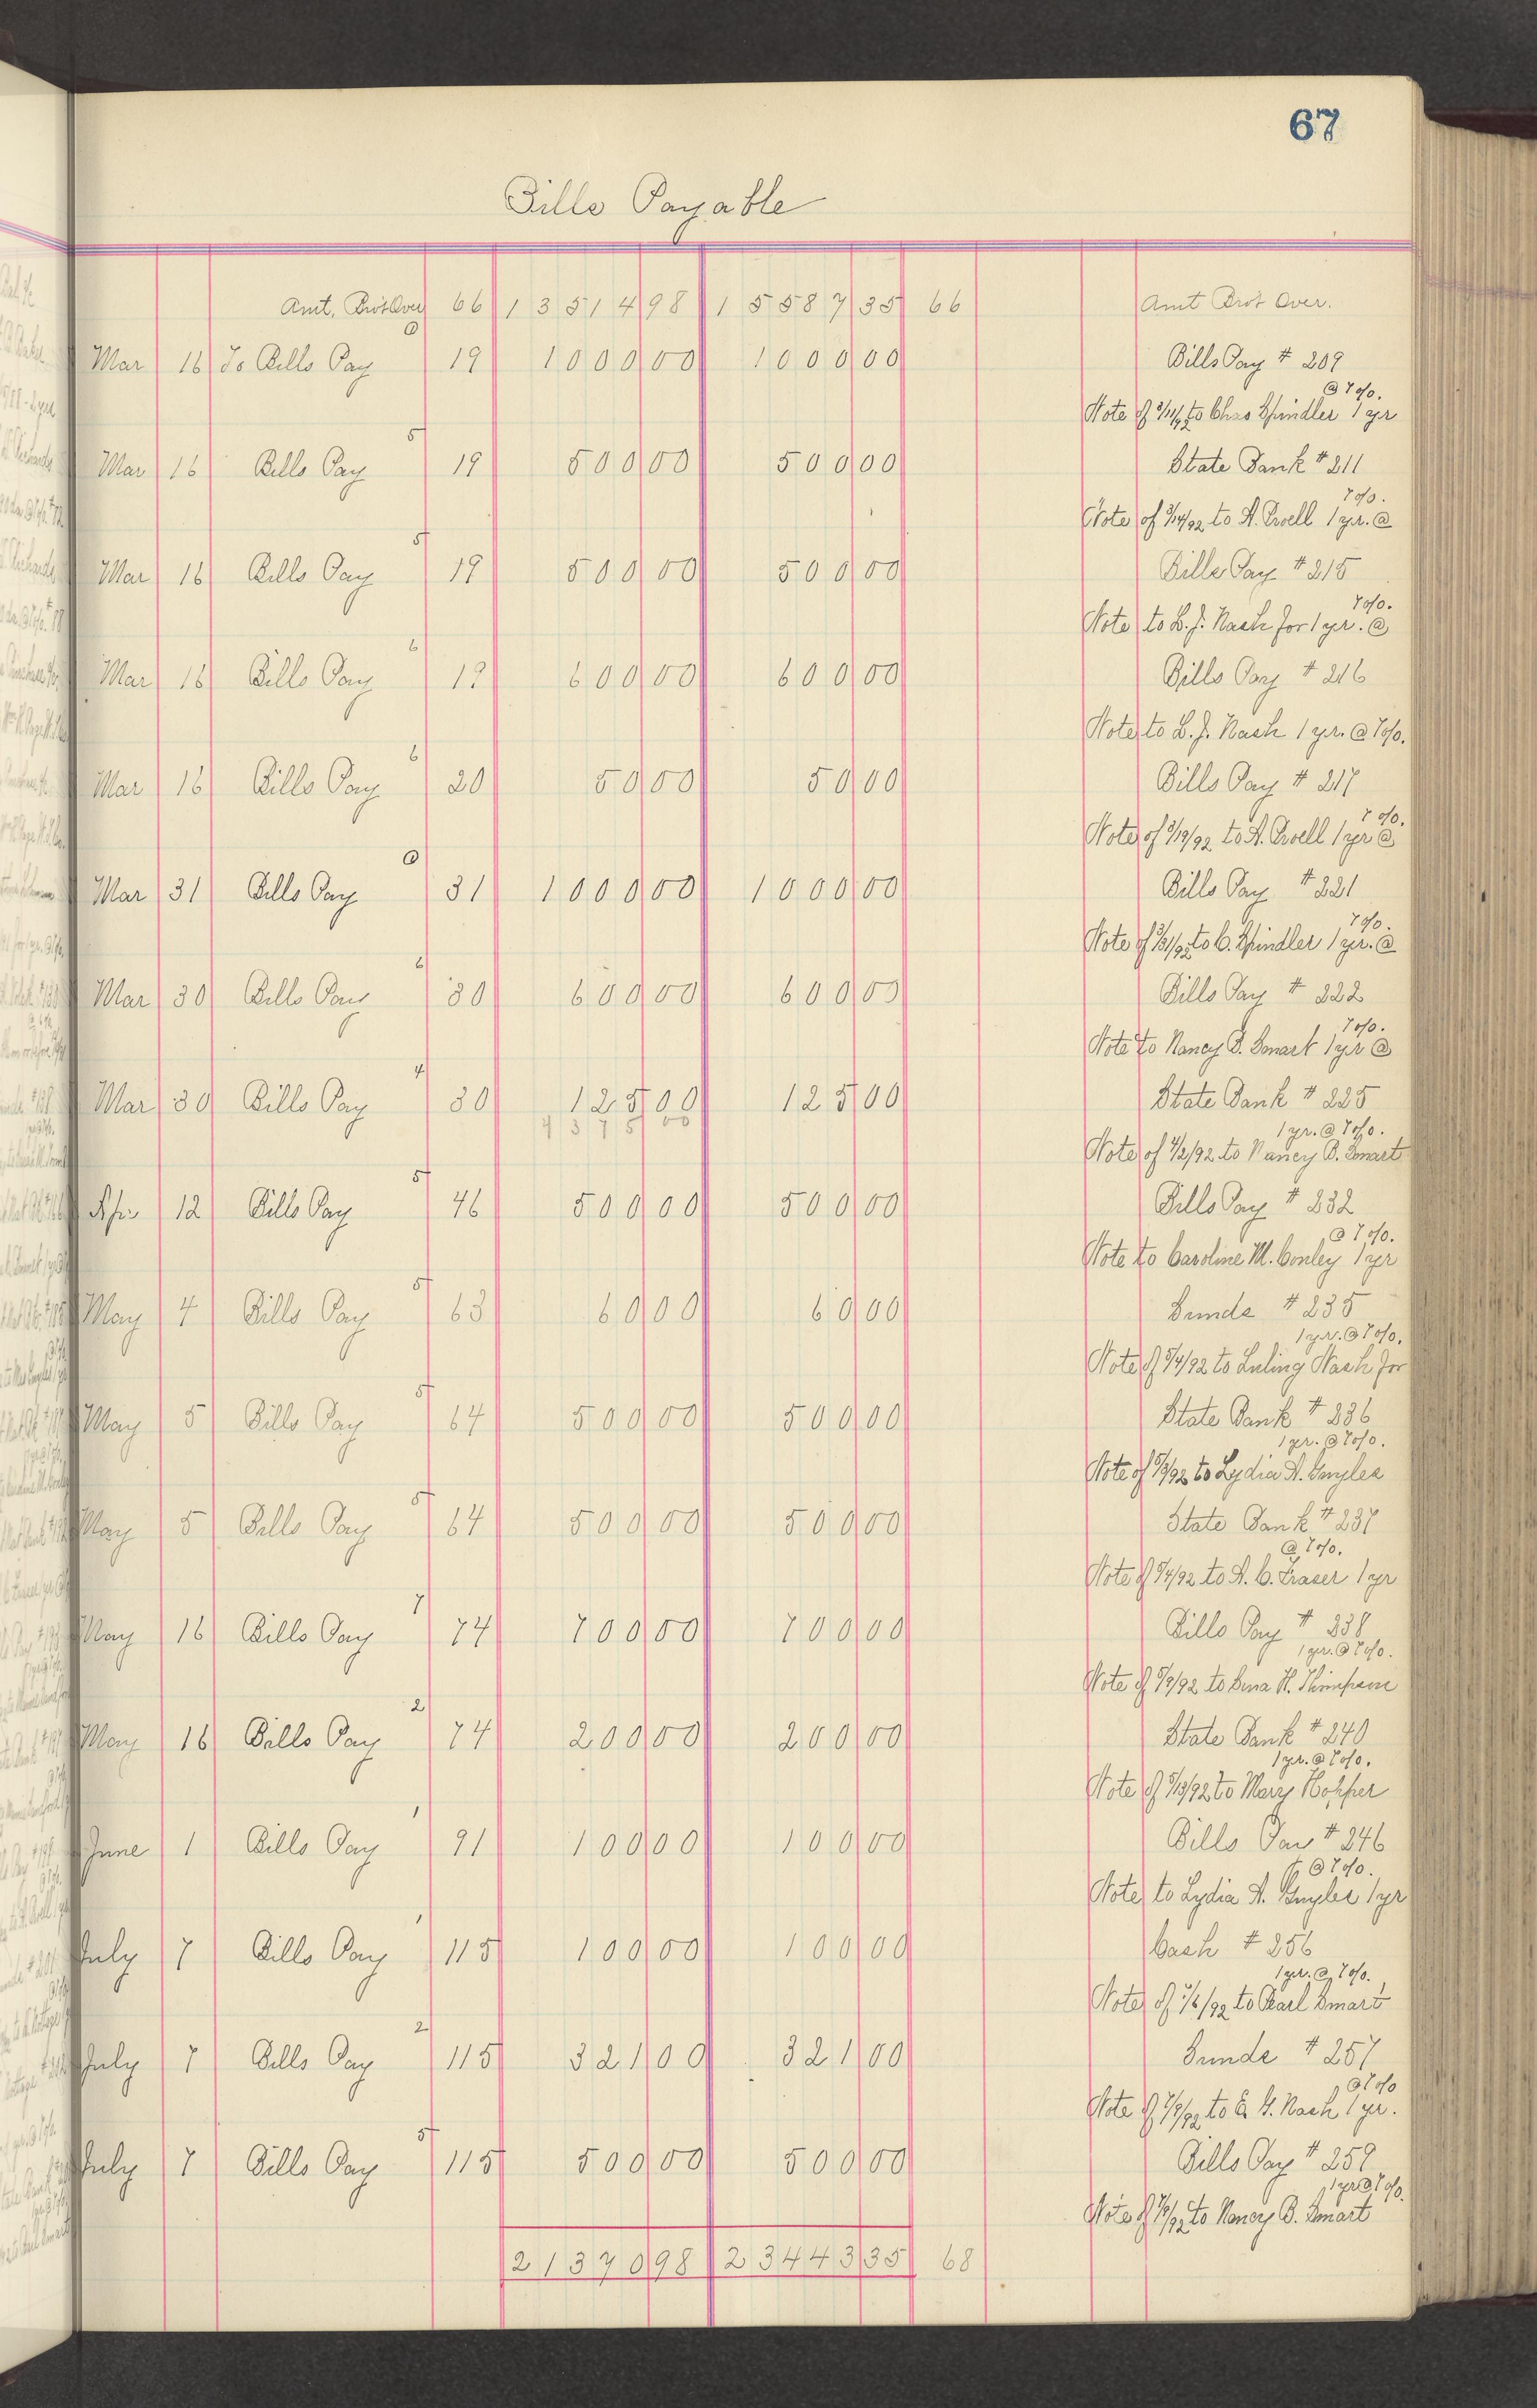 67
Bills Payable
Amt. Brot Over 66 13514 98 15587 35 66 Amt Brot Over.
Mar 16 To Bills Pay 19 1000 00 1000 00 Bills Pay # 209
@ 7 o/o.
Note of 3/11/92 to Chas Spindler 1 yr
5
Mar 16 Bills Pay 19 500 00 500 00 State Bank # 211
7 o/o.
Note of 3/14/92 to A. Orvell 1 yr. @
5
Mar 16 Bills Pay 19 500 00 500 00 Bills Pay # 215
7 o/o.
Note to L. J. Nash for 1 yr. @
6
Mar 16 Bills Pay 19 600 00 600 00 Bills Pay # 216
Note to L. J. Nash 1 yr. @ 7 o/o.
6
Mar 16 Bills Pay 20 50 00 50 00 Bills Pay # 217
7 o/o.
Note of 3/19/92 to A. Orvell 1 yr @
Mar 31 Bills Pay 31 1000 00 1000 00 Bills Pay # 221
7 o/o.
Note of 3/31/92 to C. Spindler 1 yr. @
6
Mar 30 Bills Pay 30 600 00 600 00 Bills Pay # 222
7 o/o.
Note to Nancy B. Smart 1 yr @
4
Mar 30 Bills Pay 30 125 00 125 00 State Bank # 225
4375 00
1 yr. @ 7 o/o.
Note of 4/2/92 to Nancy B. Smart
5
Apr 12 Bills Pay 46 500 00 500 00 Bills Pay # 232
@ 7 o/o.
Note to Caroline M. Conley 1 yr
5
May 4 Bills Pay 63 60 00 60 00 Sunds # 235
1 yr. @ 7 o/o.
Note of 5/4/92 to Luling Nash for
5
May 5 Bills Pay 64 500 00 500 00 State Bank # 236
1 yr. @ 7 o/o.
Note of 5/3/92 to Lydia A. Smyles
5
May 5 Bills Pay 64 500 00 500 00 State Bank # 237
@ 7 o/o.
Note of 5/4/92 to A. C. Fraser 1 yr
7
May 16 Bills Pay 74 700 00 700 00 Bills Pay # 238
1 yr. @ 7 o/o.
Note of 5/9/92 to Lena H. Thompson
2
May 16 Bills Pay 74 200 00 200 00 State Bank # 240
1 yr. @ 7 o/o.
Note of 5/13/92 to Mary Hopper
1
June 1 Bills Pay 91 100 00 100 00 Bills Pay # 246
@ 7 o/o.
Note to Lydia A. Smyles 1 yr
1
July 7 Bills Pay 115 100 00 100 00 Cash # 256
1 yr. @ 7 o/o.
Note of 7/6/92 to Pearl Smart
2
July 7 Bills Pay 115 321 00 321 00 Sunds # 257
@ 7 o/o
Note of 7/9/92 to E. G. Nash 1 yr.
5
July 7 Bills Pay 115 500 00 500 00 Bills Pay # 259
1 yr @ 7 o/o.
Note of to Nancy B. Smart
21370 98 23443 35 68